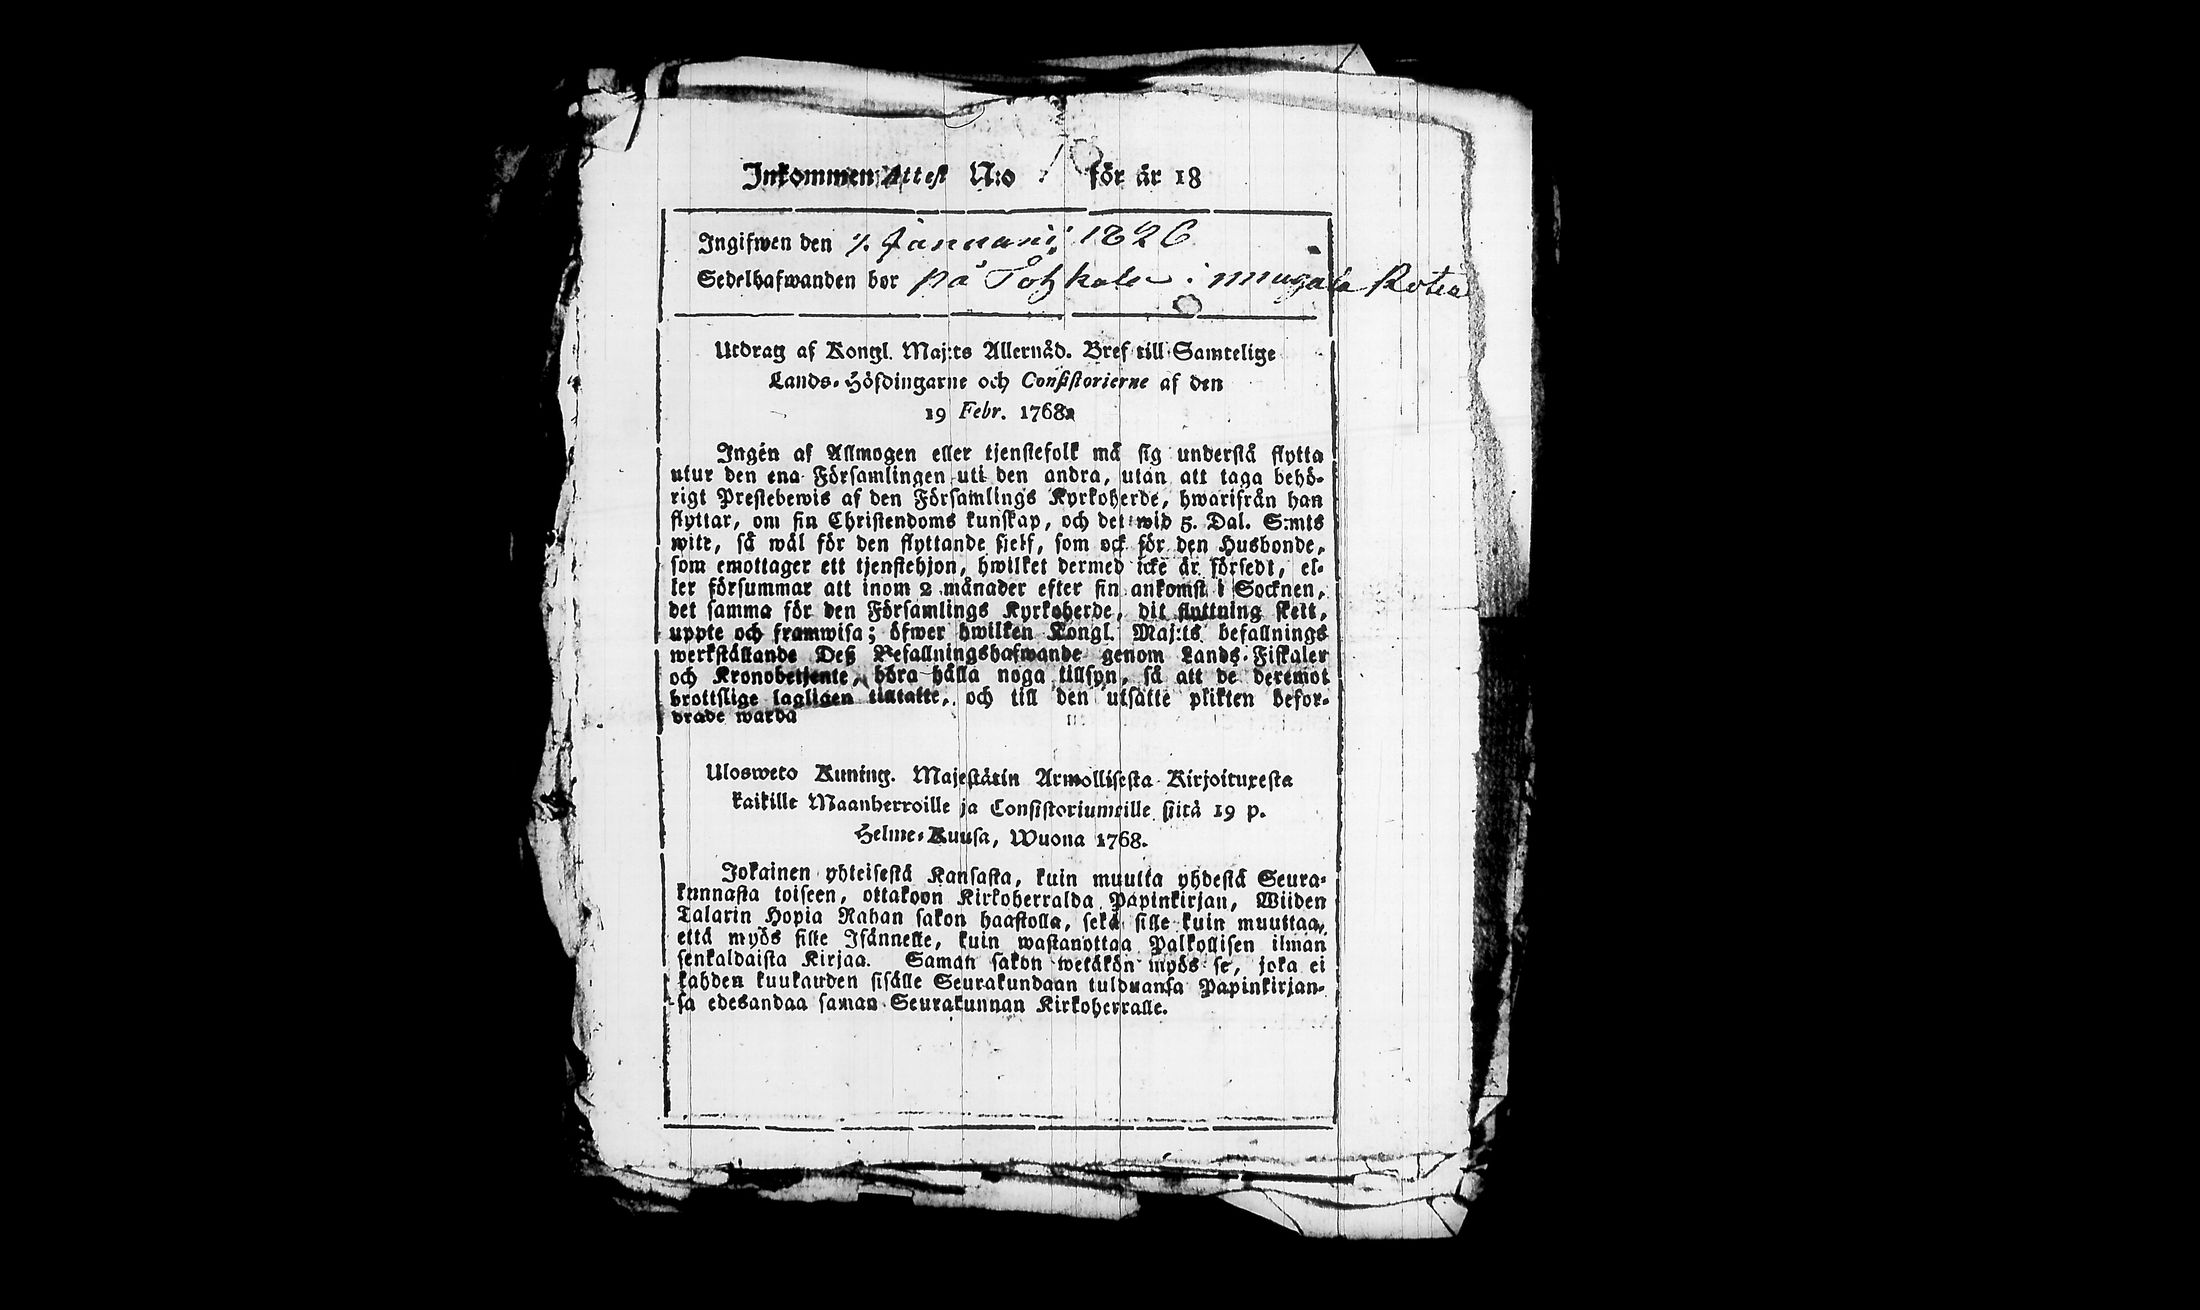 Inkommen Attest N:o 1 för år 18
Ingifwen den 1/1 Januarii 1826
Sedelhafwanden bor på i Rotea
Utdrag af Kongl. Maj:ts Allernåd. Bref till Samtelige
Lands-Höfdingarne och Consistorierne af den
19 Febr. 1768.
Ingen af Allmogen eller tjenstefolk må sig understå flytta
utur den ena Församlingen uti den andra, utan att taga behö-
rigt Prestebewis af den Församlings Kyrkoherde, hwarifrån han
flyttar, om sin Christendoms kunskap, och det wid 5. Dal. S:mts
wite, så wäl för den flyttande sjelf, som ock för den Husbonde,
som emottager ett tjenstehjon, hwilket dermed icke är försedt, el-
ler försummar att inom 2 månader efter sin ankomst i Socknen,
det samma för den Församlings Kyrkoherde, dit flyttning skett,
uppte och framwisa; öfwer hwilken Kongl. Maj:ts befallnings
werkställande Deß Befallningshafwande genom Lands-Fiskaler
och Kronobetjente, böra hålla noga tillsyn, så att de deremot
brottslige lagligen tilltalte, och till den utsatte plikten befor-
drade warda
Ulosweto Kuning. Majestätin Armollisesta Kirjoituxesta
kaikille Maanherroille ja Consistoriumeille siitä 19 p.
Helme-Kuusa, Wuona 1768.
Jokainen yhteisestä Kansasta, kuin muutta yhdestä Seura-
kunnasta toiseen, ottakoon Kirkoherralda Papinkirjan, Wiiden
Talarin Hopia Rahan sakon haastolla, sekä sille kuin muuttaa,
että myös sille Isännelle, kuin wastanottaa Palkollisen ilman
senkaldaista Kirjaa. Saman sakon wetäkön myös se, joka ei
kahden kuukauden sisälle Seurakundaan tulduansa Papinkirjan-
sa edesandaa saman Seurakunnan Kirkoherralle.